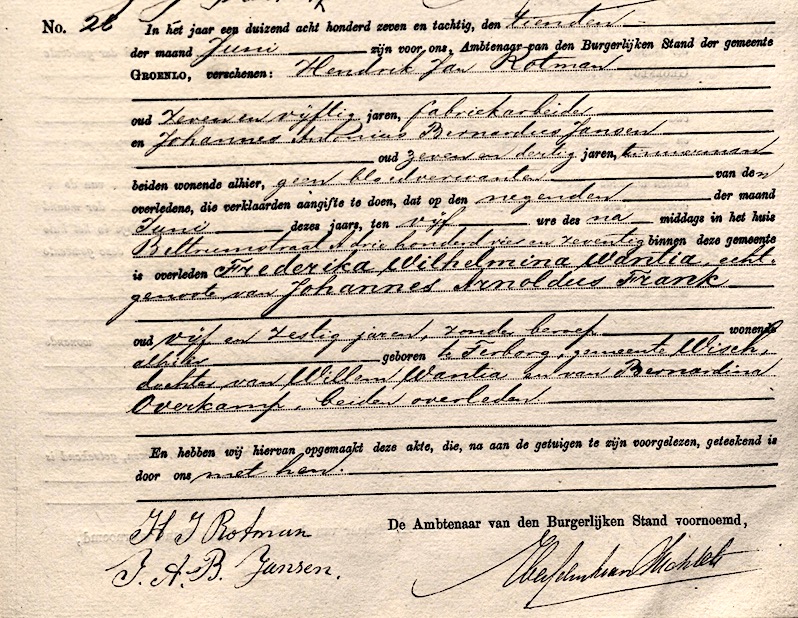 No. 26 In het jaar een duizend acht honderd zeven en tachtig, den tienden
der maand Juni zijn voor ons, Ambtenaar van den Burgerlijken Stand der gemeente
GROENLO, verschenen: Hendrik Jan Rotman
oud zeven en vijftig jaren, fabriekarbeider
en Johannes Antonius Bernardus Jansen
oud zeven en dertig jaren, timmerman
beiden wonende alhier, geen bloedverwanten van den
overledene, die verklaarden aangifte te doen, dat op den negenden der maand
Juni dezes jaars, ten vijf ure des na middags in het huis
Beltrumstraat drie honderd vier en zeventig binnen deze gemeente
is overleden Frederika Wilhelmina Wantia, echt-
genoote van Johannes Arnoldus Frank
oud vijf en zestig jaren, zonder beroep wonende
alhier geboren te Terborg, gemeente Wisch,
dochter van Willem Wantia en van Bernardina
Overkamp, beiden overleden
En hebben wij hiervan opgemaakt deze akte, die, na aan de getuigen te zijn voorgelezen, geteekend is
door ons met hen.
De Ambtenaar van den Burgerlijken Stand voornoemd,
H J Rotman
J. A. B. Jansen.